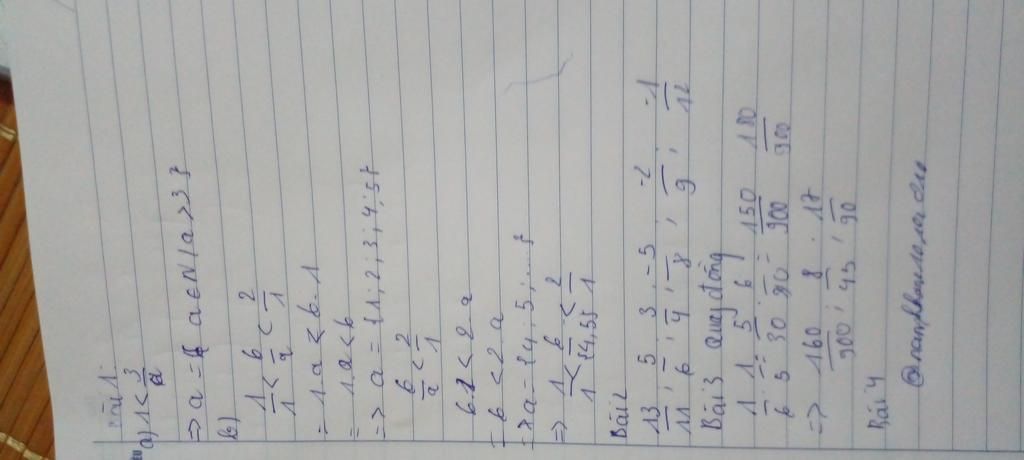 Bài 1:
a) 1 < 3/a
=> a = { a ∈ N / a > 3 }
b)
1/1 < 6/a < 2/1
= 1.a < 6.1
= 1a < 6
=> a = {1; 2; 3; 4; 5}
6/a < 2/1
6.1 < 2a
= 6 < 2a
=> a = {4; 5; ....}
=> 1/1 < 6/{4,5} < 2/1
Bài 2
13/11; 5/6; 3/4; -5/8; -2/9; -1/12
Bài 3 quy đồng
1/6 : 1/5 = 5/30 : 6/30 = 150/900 180/900
=> 160/900; 8/45; 17/90
Bài 4